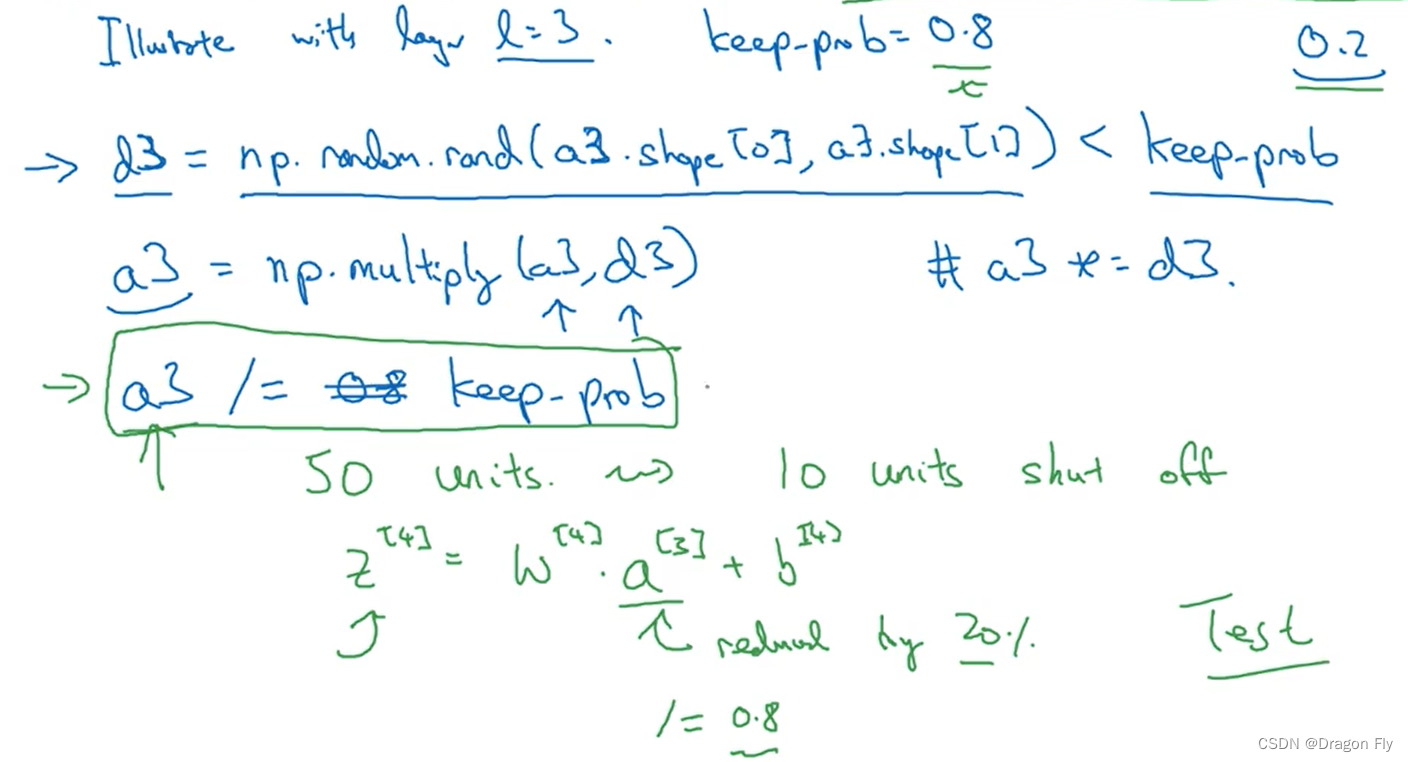 Illustrate with layer l=3. keep-prob= 0.8 0.2
→ d3 = np.random.rand(a3.shape[0], a3.shape[1]) < keep-prob
a3 = np.multiply(a3, d3) # a3 *= d3.
→ a3 /= 0.8 keep-prob
50 units. ⇝ 10 units shut off
z^[4] = W^[4] · a^[3] + b^[4]
reduced by 20% Test
/= 0.8
CSDN @Dragon Fly